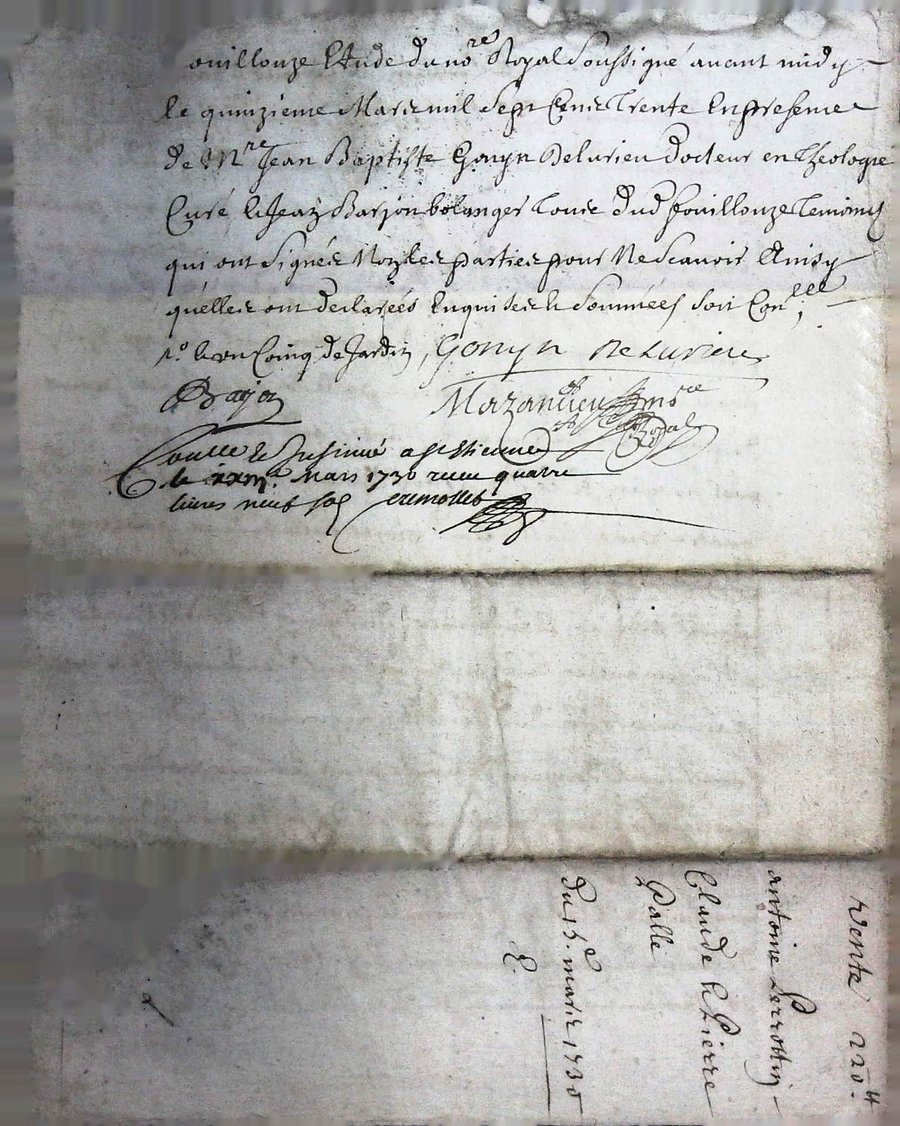 ouillouze Etude du no.re Royal Soussigné avant midy
le quinzieme Mars mil Sept Cens trente En presence
de Mre Jean Baptiste Gonyn Delurieu docteur en theologie
Curé & Jean Barjon bolanger tous dud fouillouze temoins
qui ont Signés Non les parties pour Ne Scavoir Ainsy
quelles ont declarées Enquises & Sommées Soit Con.llé
r.o & un Coing de Jardin, Gonyn Delurieu
Barjon Mazandieu no.re
Royal
Controllé & Insinué a St Estienne
le mars 1730 receu quatre
livres neuf sols
Vente 220.ll
Antoine Perrottin
Claude & Pierre
Palle
du 15.e mars 1730
E.